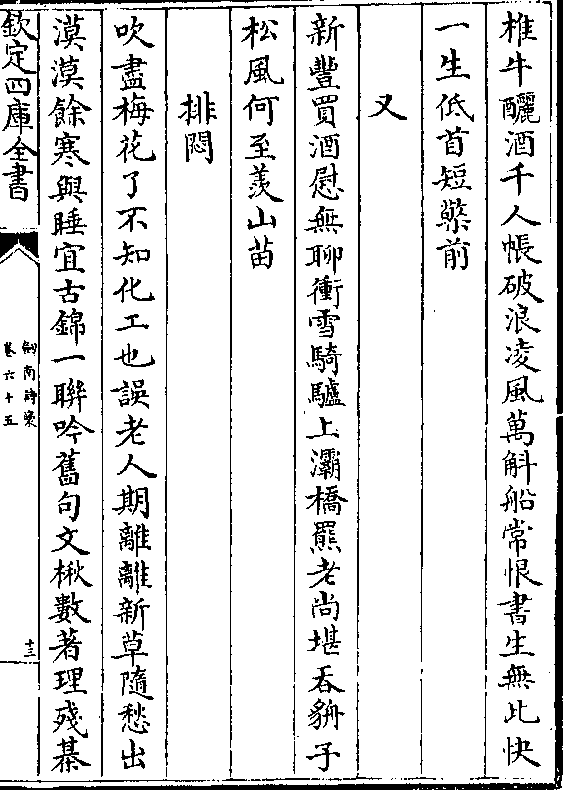 椎牛釃酒千人帳破浪凌風萬斛船常恨書生無此快
一生低首短檠前
又
新豐買酒慰無聊衝雪騎驢上灞橋羈老尚堪吞貈子
松風何至羨山苗
排悶
吹盡梅花了不知化工也誤老人期離離新草隨愁出
漠漠餘寒與睡宜古錦一聯吟舊句文楸數著理殘棊
欽定四庫全書
劍南詩稾
卷六十五
十三